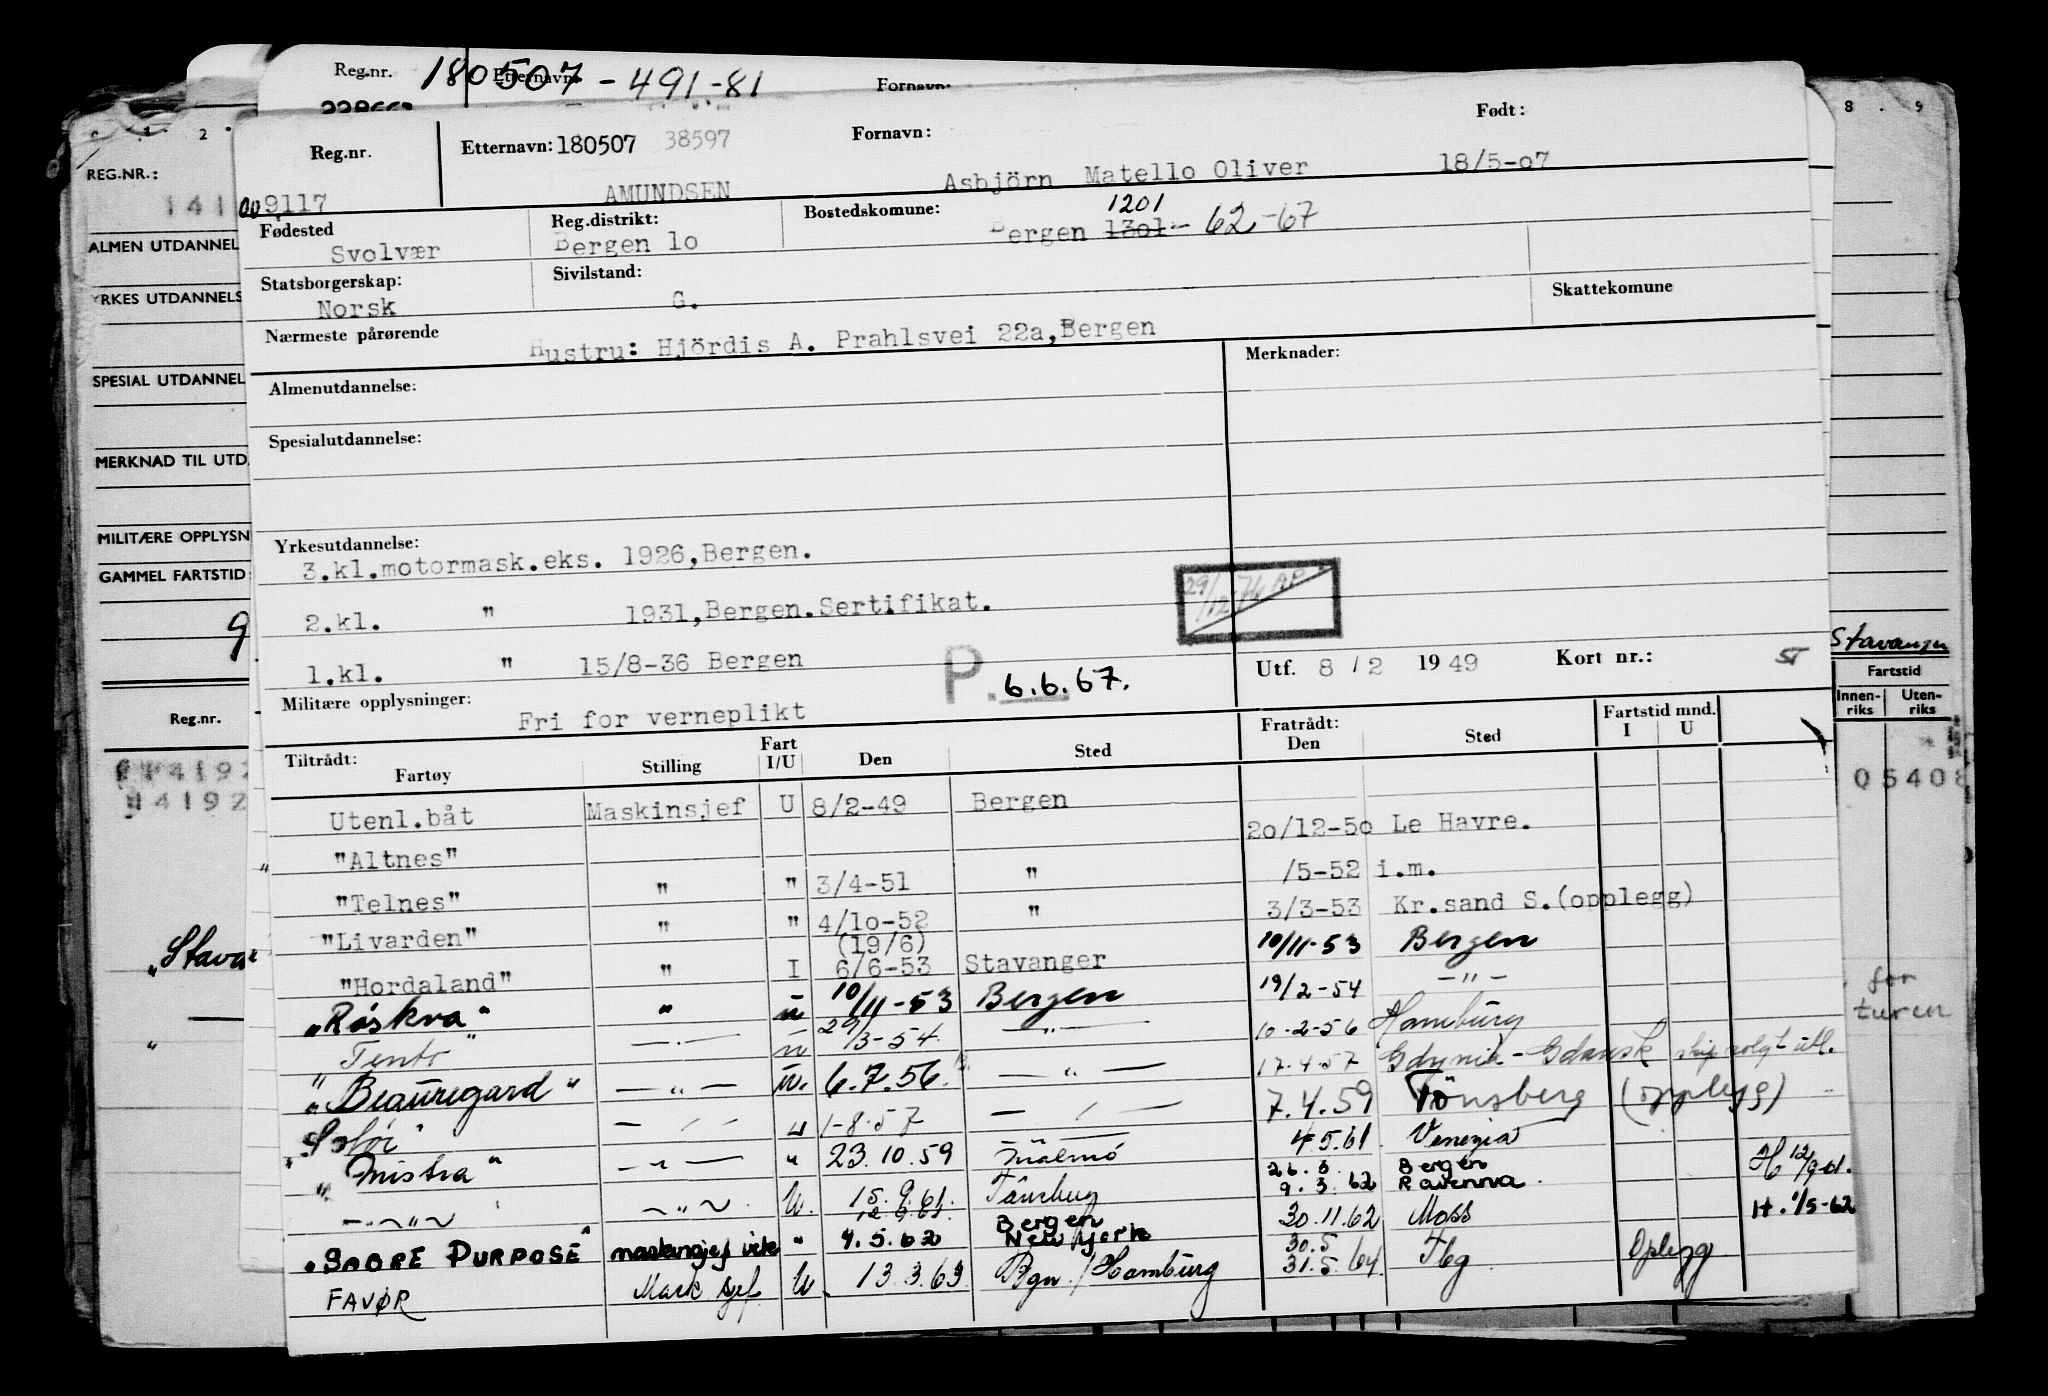 Reg.nr. 180507-491-81 Etternavn: Fornavn:
Reg.nr. Etternavn: 180507 38597 Fornavn: Født:
009117 AMUNDSEN Asbjörn Matello Oliver 18/5-07
Fødested Reg.distrikt: Bostedskomune: 1201
Svolvær Bergen lo Bergen 1301- 62-67
Statsborgerskap: Sivilstand: Skattekomune
Norsk G.
Nærmeste pårørende
Hustru: Hjördis A. Prahlsvei 22a,Bergen
Almenutdannelse: Merknader:
Spesialutdannelse:
Yrkesutdannelse:
3.kl.motormask.eks. 1926,Bergen.
2.kl. " 1931,Bergen.Sertifikat.
1.kl. " 15/8-36 Bergen
P. 6.6.67.
Utf. 8 / 2 1949 Kort nr.:
Militære opplysninger:
Fri for verneplikt
Tiltrådt: Fart Fratrådt: Fartstid mnd.
Fartøy Stilling I/U Den Sted Den Sted I U
Utenl.båt Maskinsjef U 8/2-49 Bergen
"Altnes" 20/12-50 Le Havre.
"Telnes" " " 3/4-51 " /5-52 i.m.
"Livarden" " " 4/10-52 " 3/3-53 Kr.sand S.(opplegg)
(19/6)
"Hordaland" " I 6/6-53 Stavanger 10/11-53 Bergen
"Röskva" " u 10/11-53 Bergen 19/2-54 -"-
"Tento" -"- u 29/3-54 -"- 10-2-56 Hamburg
"Beauregard" -"- u. 6.7.56 -"- 17.4.57 Gdynia-Gdansk skip solgt utl.
-"- u 1-8-57 -"- 7.4.59 Tönsberg (opplegg)
"Mistra" -"- " 23.10.59 Malmö 4.5.61. Venezia
-"- -"- U. 15.9.61. Tönsberg 9.3.62 Bergen Ravenna. H 12/9-61.
"SABRE PURPOSE" maskinsjef vik " 4.5.62 Bergen New York 30.11.62 Moss H. 1/5-62
FAVØR Mask sjef U. 13.3.63 Bgn./Hamburg 30.5 31.5.64. Tbg Oplegg
REG.NR.:
ALMEN UTDANNEL
YRKES UTDANNELS
SPESIAL UTDANNEL
MERKNAD TIL UTD.
MILITÆRE OPPLYSN
GAMMEL FARTSTID:
9
Reg.nr.
14192
"Stava
Stavanger
Fartstid
Innen- Uten-
riks riks
05408
for
turen
8 . 9